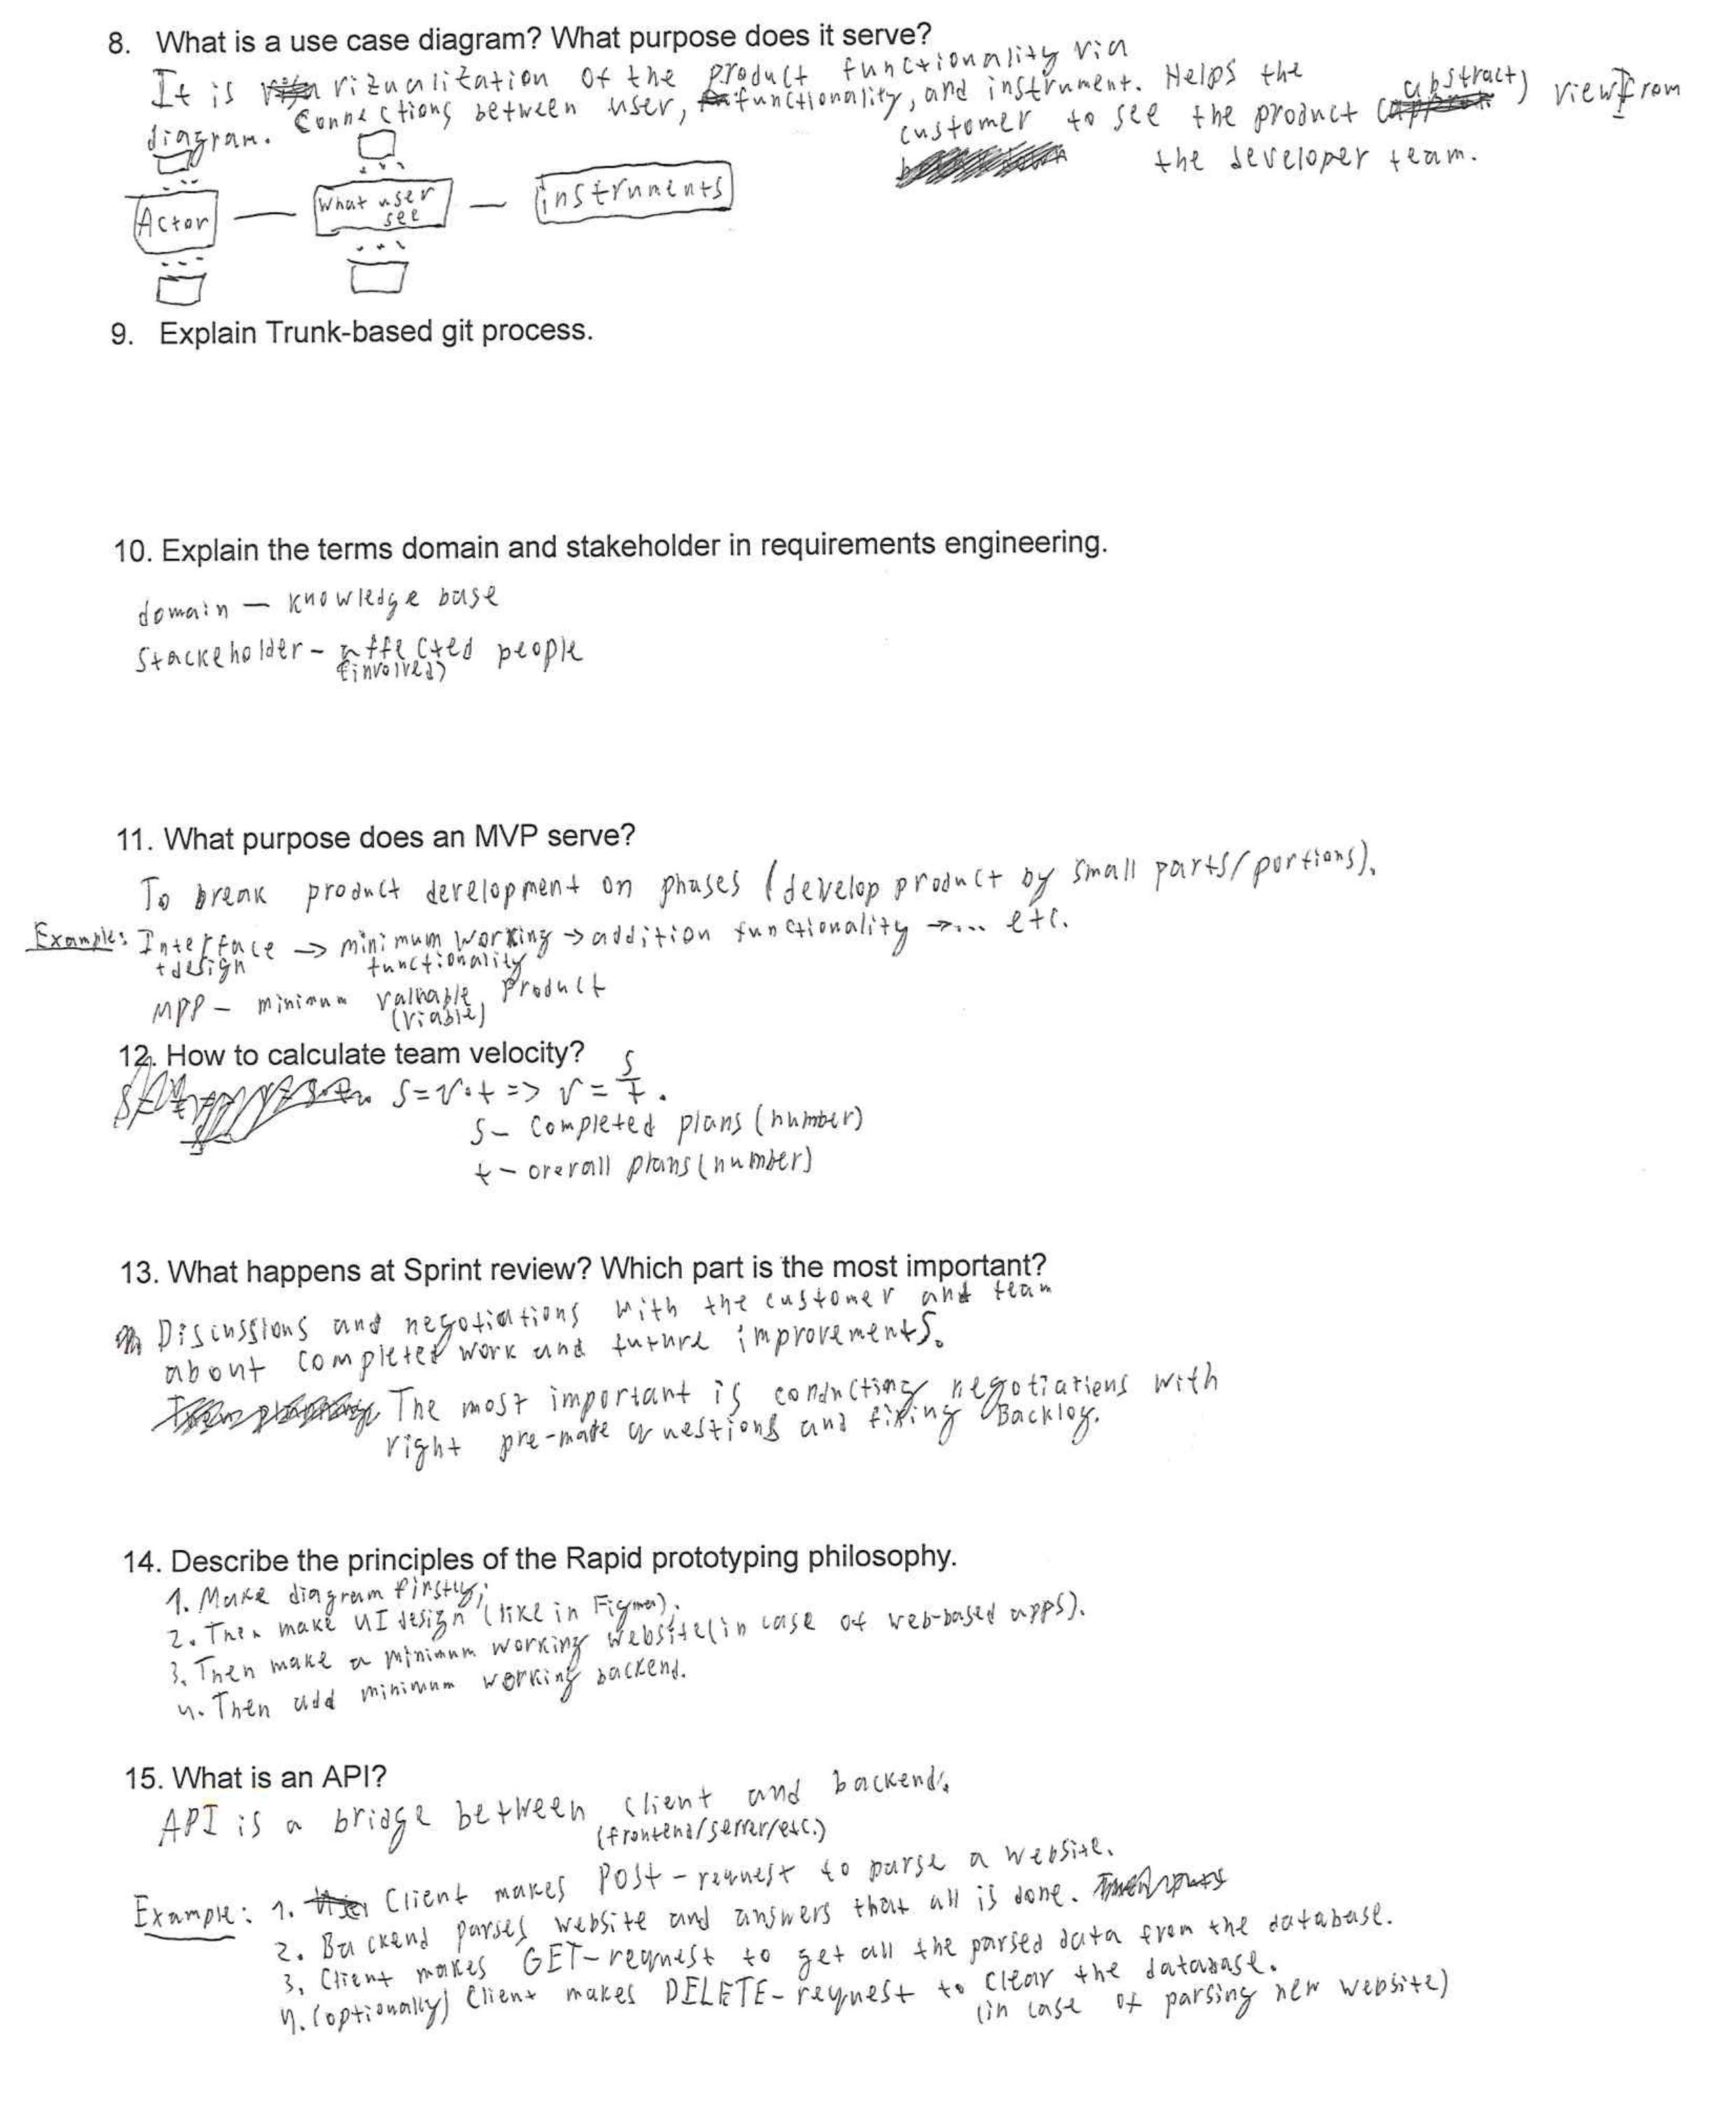 8. What is a use case diagram? What purpose does it serve?
It is vizualization of the product functionality via
diagram. Connections between user, functionality, and instrument. Helps the
customer to see the product (abstract) view from
the developer team.
Actor — What user see — instruments
9. Explain Trunk-based git process.
10. Explain the terms domain and stakeholder in requirements engineering.
domain — knowledge base
Stackeholder - affected people
(involved)
11. What purpose does an MVP serve?
To break product development on phases (develop product by small parts/portions).
Example: Interface → minimum working → addition functionality →... etc.
+design functionality
MPP - minimum valuable product
(viable)
12. How to calculate team velocity?
S=v·t => v = S/t.
S - completed plans (number)
t - overall plans (number)
13. What happens at Sprint review? Which part is the most important?
Discussions and negotiations with the customer and team
about completed work and future improvements.
The most important is conducting negotiations with
right pre-made questions and fixing Backlog.
14. Describe the principles of the Rapid prototyping philosophy.
1. Make diagram firstly;
2. Then make UI design (like in Figma).
3. Then make a minimum working website (in case of web-based apps).
4. Then add minimum working backend.
15. What is an API?
API is a bridge between client and backend.
(frontend/server/etc.)
Example: 1. Client makes POST-request to parse a website.
2. Backend parses website and answers that all is done.
3. Client makes GET-request to get all the parsed data from the database.
4. (optionally) Client makes DELETE-request to clear the database.
(in case of parsing new website)